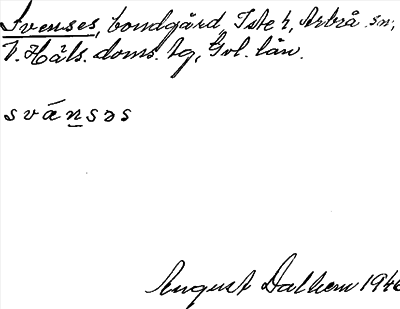 Svenses, bondgård, Iste 2, Arbrå sn,
V. Häls. doms. tg, Gvl. län.
svánsəs
August Dalhem 1946